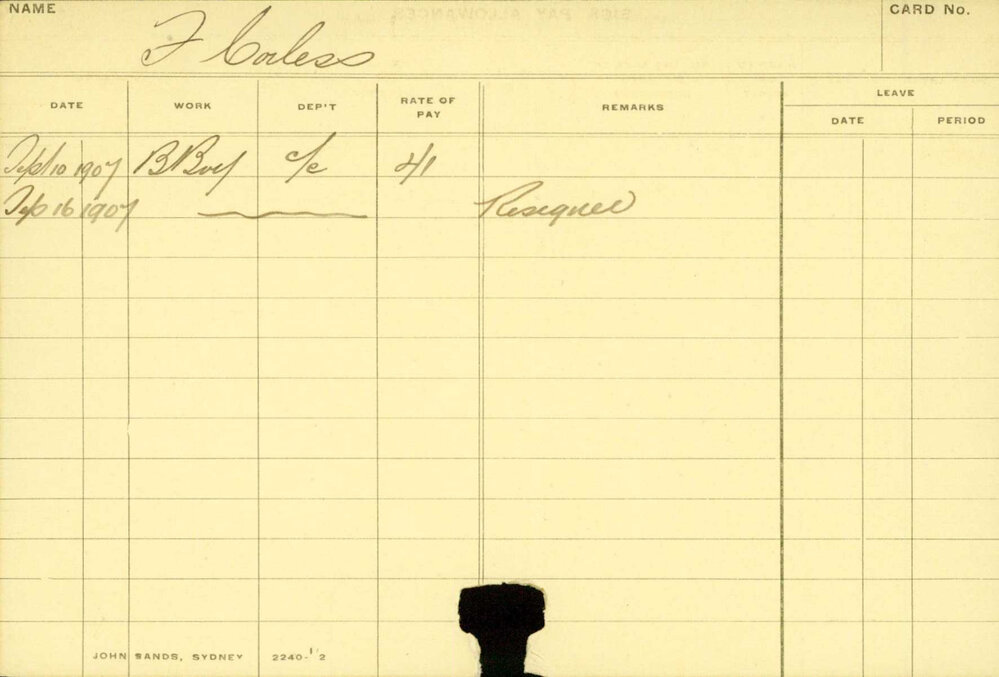 NAME
CARD No.
F Corless
DATE WORK DEP'T RATE OF PAY REMARKS LEAVE
DATE PERIOD
Sept 10 1907 B Boy c/c 4/1
Sep 16 1907 Resigned
JOHN SANDS, SYDNEY 2240-1/2